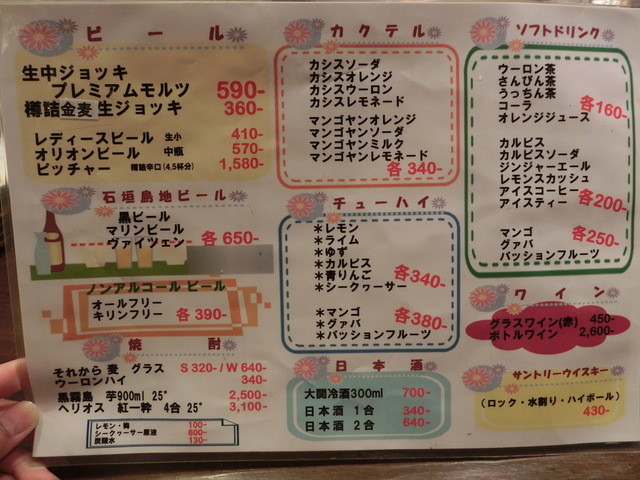 ビール
生中ジョッキ
プレミアムモルツ 590-
樽詰金麦生ジョッキ 360-
レディースビール 生小 410-
オリオンビール 中瓶 570-
ピッチャー 樽詰辛口(4.5杯分) 1,580-
石垣島地ビール
黒ビール
マリンビール
ヴァイツェン 各650-
ノンアルコールビール
オールフリー
キリンフリー 各390-
焼酎
それから 麦 グラス S 320-/W 640-
ウーロンハイ 340-
黒霧島 芋900ml 25° 2,500-
ヘリオス 紅一粋 4合 25° 3,100-
レモン・梅 100-
シークヮーサー原液 600-
炭酸水 130-
カクテル
カシスソーダ
カシスオレンジ
カシスウーロン
カシスレモネード
マンゴヤンオレンジ
マンゴヤンソーダ
マンゴヤンミルク
マンゴヤンレモネード
各340-
チューハイ
＊レモン
＊ライム
＊ゆず
＊カルピス
＊青りんご
＊シークヮーサー
各340-
＊マンゴ
＊グァバ
＊パッションフルーツ
各380-
日本酒
大関冷酒300ml 700-
日本酒 1合 340-
日本酒 2合 640-
ソフトドリンク
ウーロン茶
さんぴん茶
うっちん茶
コーラ
オレンジジュース
各160-
カルピス
カルピスソーダ
ジンジャーエール
レモンスカッシュ
アイスコーヒー
アイスティー
各200-
マンゴ
グァバ
パッションフルーツ
各250-
ワイン
グラスワイン(赤) 450-
ボトルワイン 2,600-
サントリーウイスキー
(ロック・水割り・ハイボール)
430-